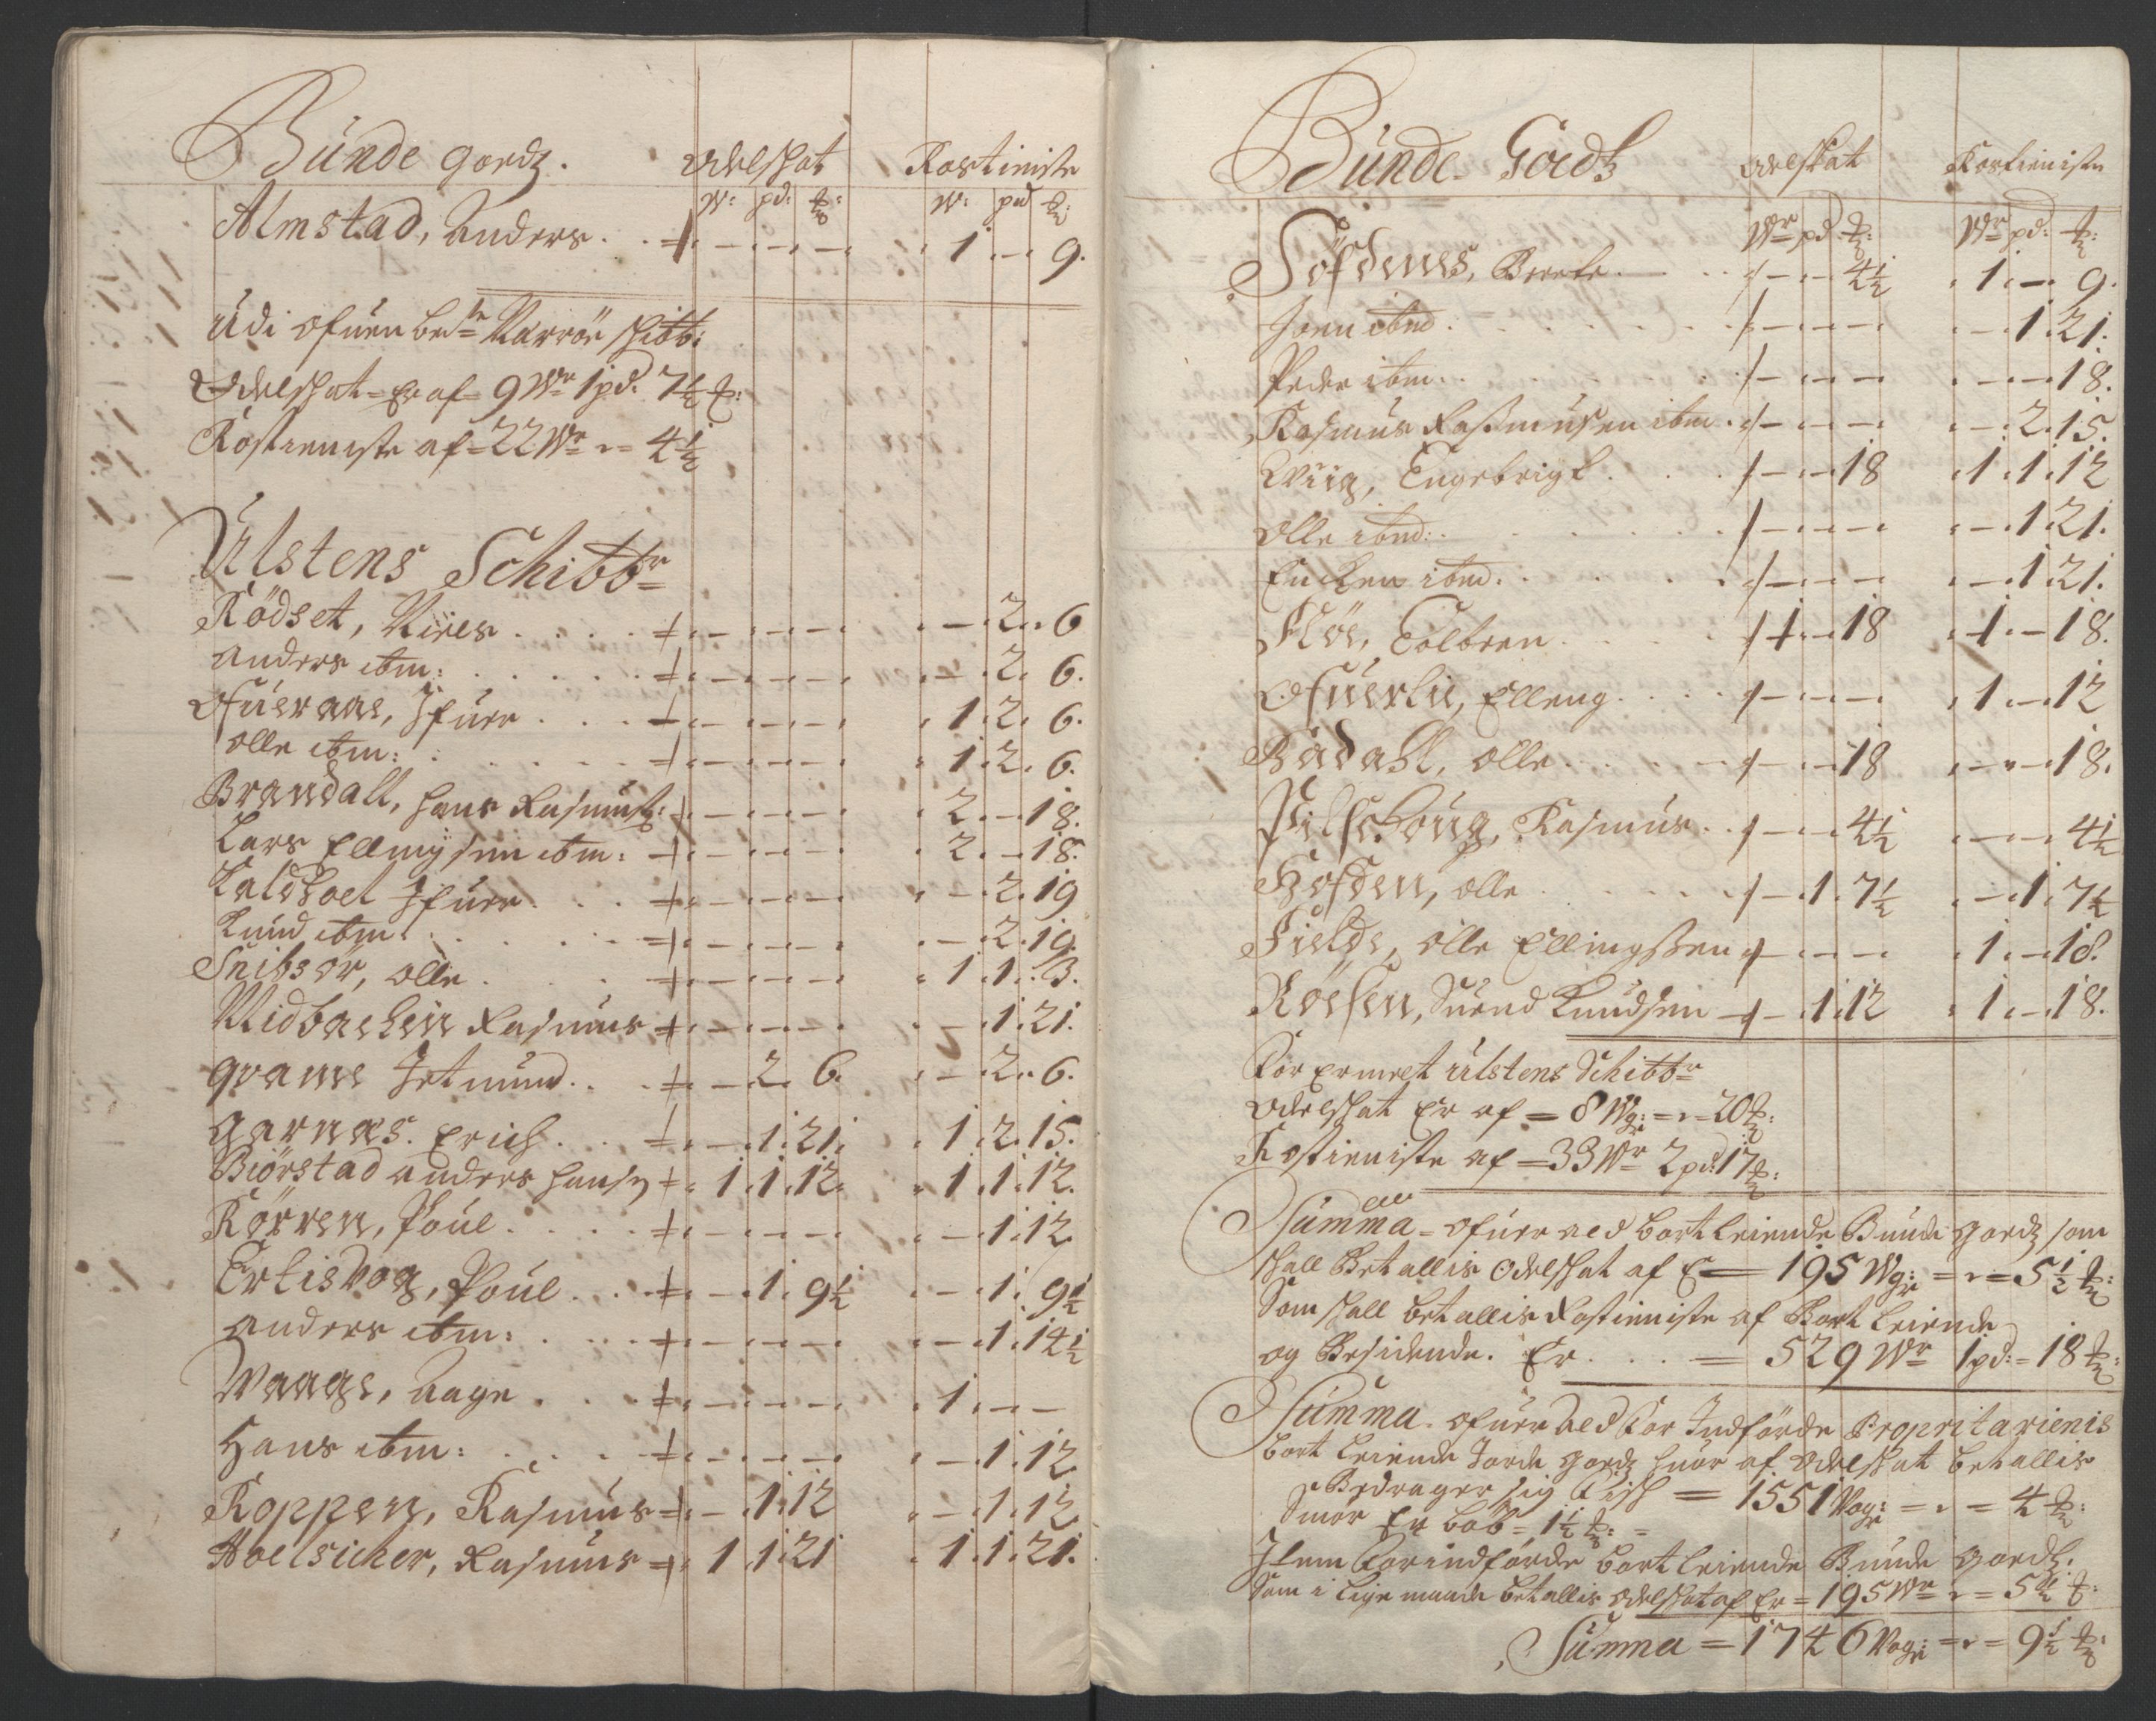 Bunde godz. Odelschat Rostieniste
W: pd: ℔: W: pd ℔:
Almstad, Anders . . - - - 1 - 9.
Udi ofuen bete Narröe schibb:
Odelschat - Er af - 9 Wr 1 pd. 7½ ℔:
Rostieniste af - 22 Wr - 4½
Ulstens Schibbr
Rödset, Niels . . . . - - - - 2. 6
Anders ibm: . . . . - - - - 2. 6.
Ofueraae, Ifuer . . . - - - 1. 2. 6.
Olle ibm: . . . . - - - 1. 2. 6.
Brandall, Hans Rasmus: - - - 2. - 18.
Lars Ellingsen ibm: - - - 2. - 18.
Kaldhoel Ifuer . . . - - - - 2. 19
Knud ibm: . . . . - - - - 2. 19.
Snibsör, Olle . . . - - - 1. 1. 3.
Midbachen Rasmus - - - - 1. 21.
Grame Jetmund . . . - 2. 6. - 2. 6.
Garnæs. Erich . . . - 1. 21. 1. 2. 15.
Biörstad Anders Hansen 1. 1. 12. 1. 1. 12.
Rörren, Poul . . . . - - - - 1. 12.
Ertisvog, Poul . . . - 1. 9½ - 1. 9½
Anders ibm: . . . . - - - - 1. 14½
Waage, Aage . . . - - - 1. - -
Hans ibm: . . . . - - - - 1. 12
Roppen, Rasmus - 1. 12 - 1. 12
Hoelsicher, Rasmus 1. 1. 21 1. 1. 21.
Bunde Godz Odelskat Rostieniste
Wr pd ℔: Wr pd: ℔:
Söfdenes, Berete . . . - - 4½ 1. - 9.
Joen ibm: . . . . - - - - 1. 21.
Peder ibm. . . . . - - - - - 18.
Rasmus Rasmusen ibm. - - - - 2. 15.
Wiig, Engebrigt . . . - - 18 1. 1. 12
Olle ibm: . . . . - - - - 1. 21.
ibm. . . . . - - - - 1. 21.
Flöe, Colbeen . . . . 1 - 18 1. - 18.
Ofuerlie, Elling . . . - - - 1. - 12
Rådahl, Olle . . . . - - 18 - - 18.
Pilschoug, Rasmus . . - - 4½ - - 4½
Hofden, Olle . . . . - 1. 7½ - 1. 7½
Fielde, Olle Ellingsen - - - 1. - 18.
Röesen, Suend Knudsen - 1. 12 1. - 18.
For ermelt Ulstens Schibbr
Odelschat Er af = 8 Wg: = - 20 ℔:
Rostieniste af = 33 Wr 2 pd: 17 ℔:
Summa - ofuer ald bortleiende Bunde godz som
schall Betallis Odelschat af Er = 195 Wg: = - = 5½ ℔:
Som schall betallis Rostieniste af Bortleiende
og Besidende. Er . . . = 529 Wr 1 pd: = 18 ℔:
Summa - ofuer ald for Indförde Propritarienis
bort leiende Jorde godz huor af Odelskat betallis
Bedrager sig Fisch = 1551 Vog: = - = 4 ℔:
Smör Er Löb = 1½ ℔: =
Item for indförde bortleiende Bunde godz.
Som i lige maade betallis Odelschat af Er = 195 Wr - = 5½ ℔:
Summa = 1746 Vog: = - = 9½ ℔: